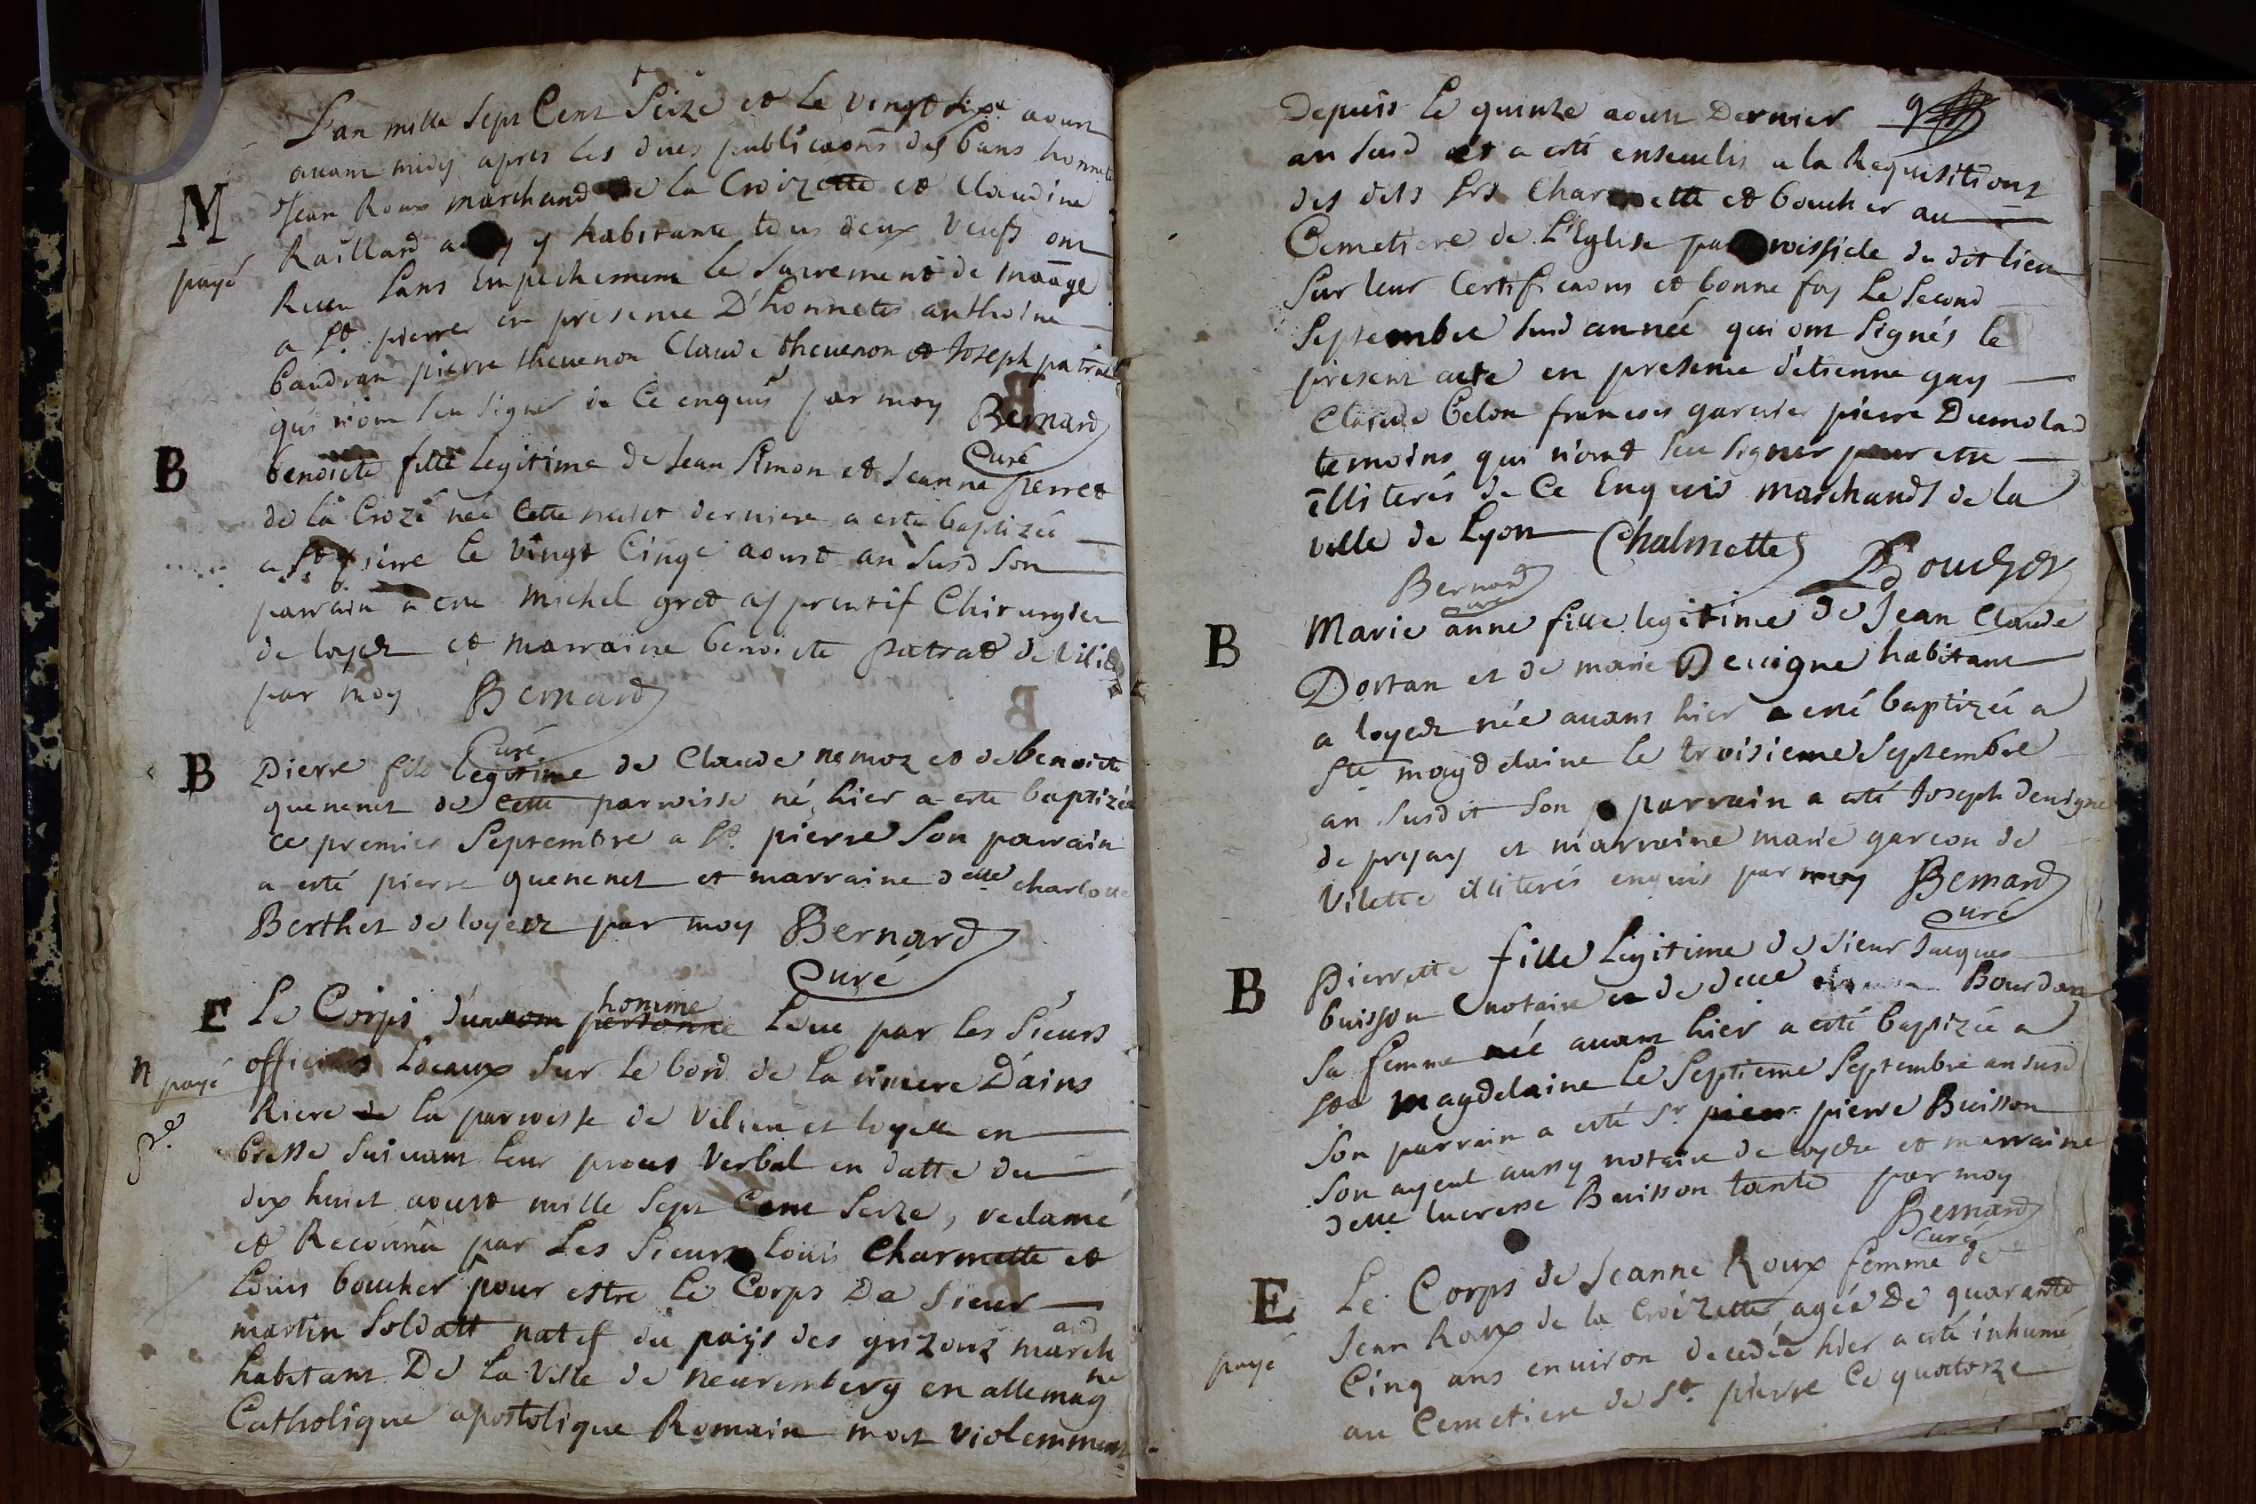 L'an mille sept Cent Seize et le vingt six.e aoust
auant midy apres les dues publicaons des bans honnete
M
Jean Roux marchand de la Croizette et Claudine
Raillard y habitants tous deux veufs ont
payé
Receu sans Empechement le Sacrement de maage
a St. pierre en presence D'honnetes anthoine
baudran pierre theuenon Claude theuenon et Joseph patra
qui n'ont sceu signer de Ce enquis par moy Bernard
Curé
B
benoicte fille legitime de Jean Simon et Jeanne pierret
de la Croze née Cette nuict derniere a esté baptizée
a St pierre le vingt Cinqe aoust an susd son
parrain a eté Michel gret apprentif Chirurgien
de loyer et marraine benoicte patrat de
par moy Bernard
Curé
B
Pierre fils legitime de Claude nemoz et de benoicte
quenenet de Cette parroisse né hier a esté baptizé
ce premier Septembre a St. pierre Son parrain
a esté pierre quenenet et marraine delle charlotte
Berthet de loyer par moy Bernard
Curé
E
Le Corps d'un homme personne Leué par les Sieurs
n payé
officiers Locaux sur le bord de la riuiere D'ains
Riere de la parroisse de velieu et loyette en
bresse suiuant leur proces verbal en datte du
dix huict aoust mille sept Cent seize, reclamé
et Reconnû par Les Sieurs louis Charmette et
louis boucher pour estre le Corps De Sieur
martin Soldatt natif du païs des grizons march
and
habitant De La Ville de neuremberg en allemag
ne
Catholique apostolique Romain mort violemment
Depuis le quinze aoust Dernier 9
an susd et a esté enseuelis a la Requisitions
des dits Srs Charmette et boucher au
Cemetiere de L'Eglise parroissiele du dit lieu
Sur leur Certificaons et bonne foy Le Second
Septembre susd année qui ont Signés le
present acte en presence d'étienne gay
Claude Belon francois garnier pierre Dumolard
temoins qui n'ont sceu signer pour etre
illiterés de Ce Enquis marchands de la
ville de Lyon Chalmette
Boucher
Bernard
Curé
B
Marie anne fille legitime de Jean Claude
Dortan et de marie Deuigne habitant
a loyer née auant hier a eté baptizée a
Ste magdelaine le troisieme Septembre
an susdit son parrain a esté Joseph deuigne
de priay et marraine marie garcon de
Vilette illiterés enquis par moy Bernard
Curé
B
Pierrette fille Legitime de Sieur Jacques
buisson notaire et de delle Bourdon
sa femme née auant hier a esté baptizée a
Ste magdelaine le Septieme Septembre an susd
son parrain a esté Sr pierr pierre Buisson
son ayeul aussy notaire de loyer et marraine
delle lucresse Buisson tante par moy
Bernard
Curé
E
Le Corps de Jeanne Roux femme de
Jean Roux de la Croizette, agée De quarante
payé
Cinq ans enuiron decedée hier a esté inhumé
au Cemetiere de St. pierre Ce quatorze